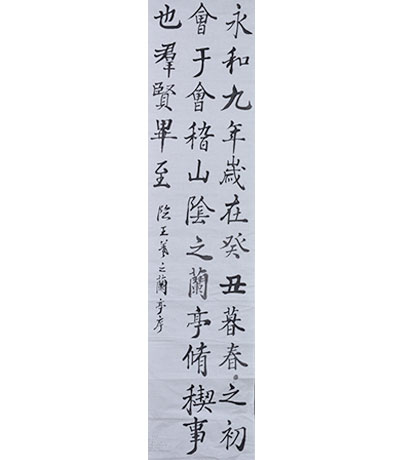 永和九年歲在癸丑暮春之初
會于會稽山陰之蘭亭脩稧事
也羣賢畢至
臨王羲之蘭亭序